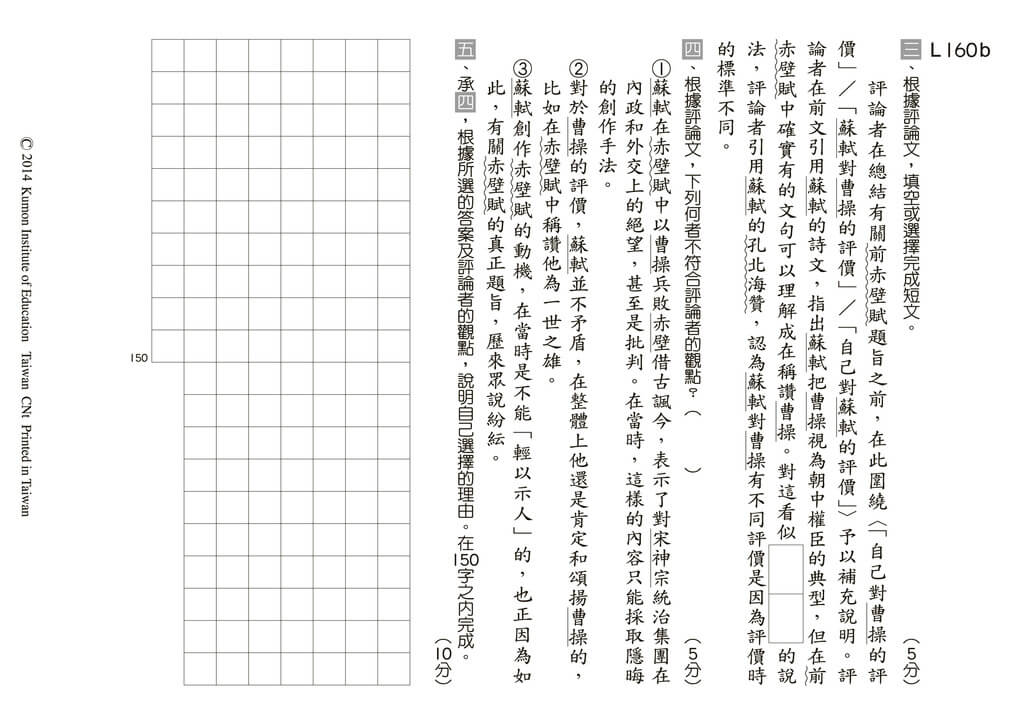 L160b
三、根據評論文，填空或選擇完成短文。（5分）
評論者在總結有關前赤壁賦題旨之前，在此圍繞〈「自己對曹操的評
價」／「蘇軾對曹操的評價」／「自己對蘇軾的評價」〉予以補充說明。評
論者在前文引用蘇軾的詩文，指出蘇軾把曹操視為朝中權臣的典型，但在前
赤壁賦中確實有的文句可以理解成在稱讚曹操。對這看似 的說
法，評論者引用蘇軾的孔北海贊，認為蘇軾對曹操有不同評價是因為評價時
的標準不同。
四、根據評論文，下列何者不符合評論者的觀點？（ ）（5分）
①蘇軾在赤壁賦中以曹操兵敗赤壁借古諷今，表示了對宋神宗統治集團在
內政和外交上的絕望，甚至是批判。在當時，這樣的內容只能採取隱晦
的創作手法。
②對於曹操的評價，蘇軾並不矛盾，在整體上他還是肯定和頌揚曹操的，
比如在赤壁賦中稱讚他為一世之雄。
③蘇軾創作赤壁賦的動機，在當時是不能「輕以示人」的，也正因為如
此，有關赤壁賦的真正題旨，歷來眾說紛紜。
五、承四，根據所選的答案及評論者的觀點，說明自己選擇的理由。在150字之內完成。
（10分）
150
© 2014 Kumon Institute of Education Taiwan CNt Printed in Taiwan